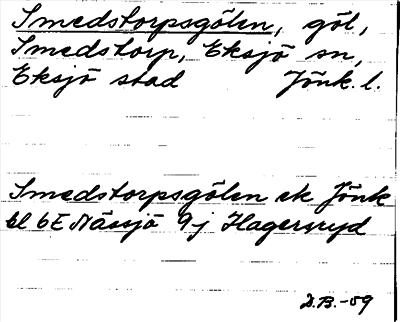 Smedstorpsgölen, göl,
Smedstorp, Eksjö sn,
Eksjö stad Jönk. l.
Smedstorpsgölen ek Jönk
bl 6E Nässjö 9j Hagersryd
D.B.-59